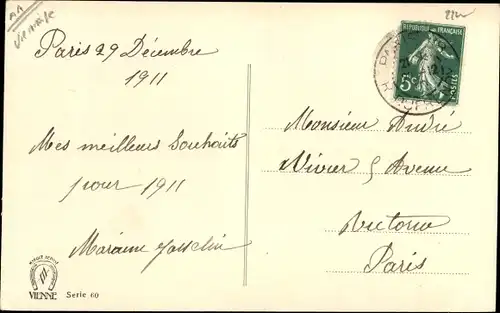 Paris 29 Décembre
1911
Mes meilleurs Souhaits
pour 1911
REPUBLIQUE FRANÇAISE
5c
POSTES
Monsieur André
Vivier 5 Avenue
Victoria
Paris
VIENNE
Serie 60